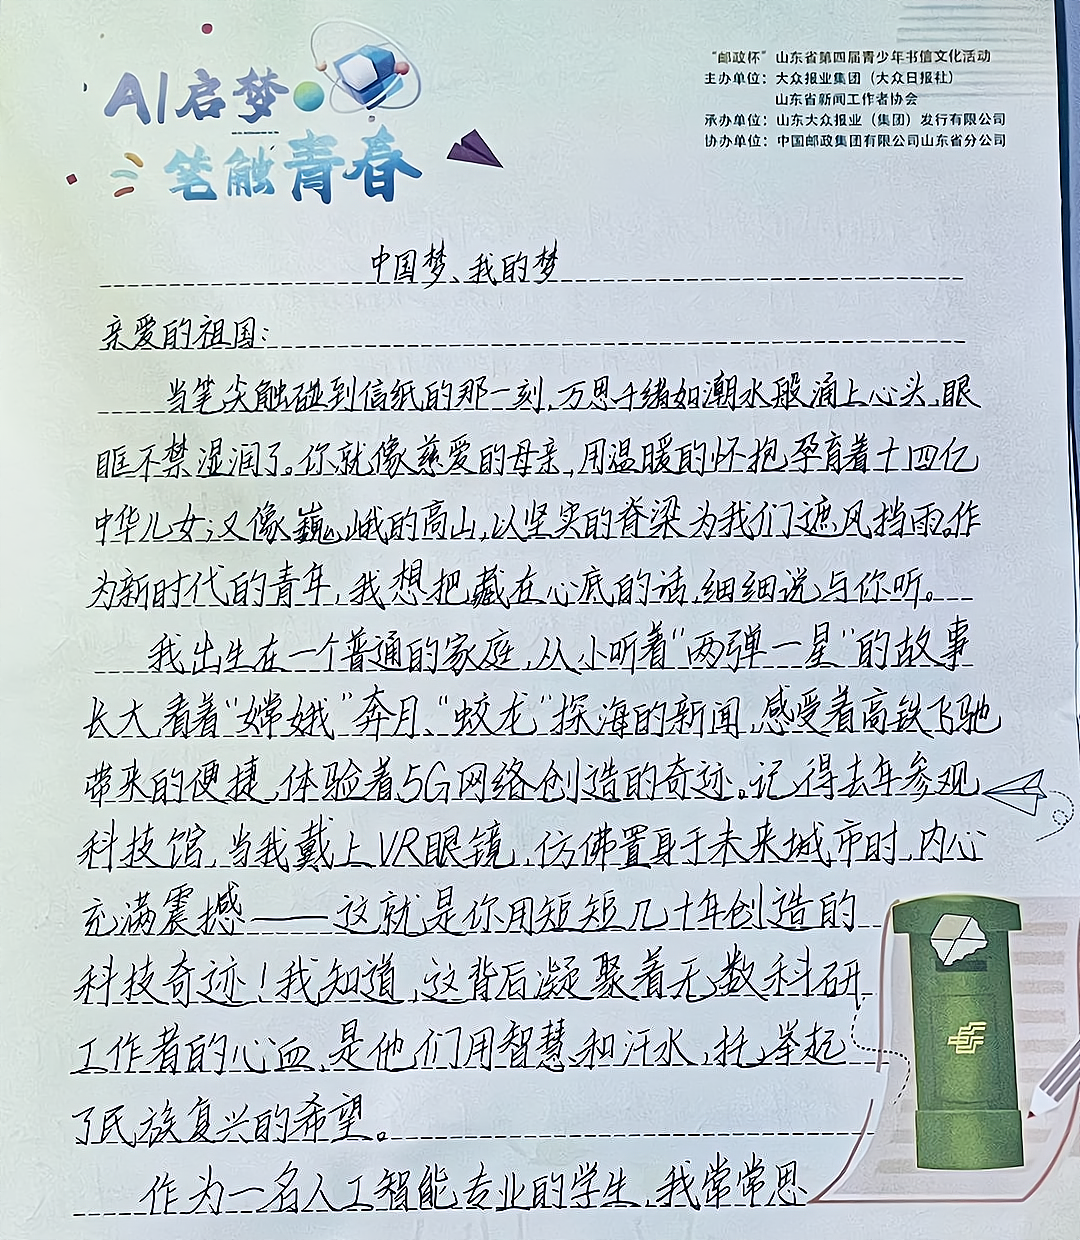 AI启梦
笔触青春
“邮政杯”山东省第四届青少年书信文化活动
主办单位：大众报业集团（大众日报社）
山东省新闻工作者协会
承办单位：山东大众报业（集团）发行有限公司
协办单位：中国邮政集团有限公司山东省分公司
中国梦、我的梦
亲爱的祖国：
当笔尖触碰到信纸的那一刻，万思千绪如潮水般涌上心头，眼
眶不禁湿润了。你就像慈爱的母亲，用温暖的怀抱孕育着十四亿
中华儿女；又像巍峨的高山，以坚实的脊梁为我们遮风挡雨。作
为新时代的青年，我想把藏在心底的话，细细说与你听。
我出生在一个普通的家庭，从小听着“两弹一星”的故事
长大，看着“嫦娥”奔月、“蛟龙”探海的新闻，感受着高铁飞驰
带来的便捷，体验着5G网络创造的奇迹。记得去年参观
科技馆，当我戴上VR眼镜，仿佛置身于未来城市时，内心
充满震撼——这就是你用短短几十年创造的
科技奇迹！我知道，这背后凝聚着无数科研
工作者的心血，是他们用智慧和汗水，托举起
了民族复兴的希望。
作为一名人工智能专业的学生，我常常思